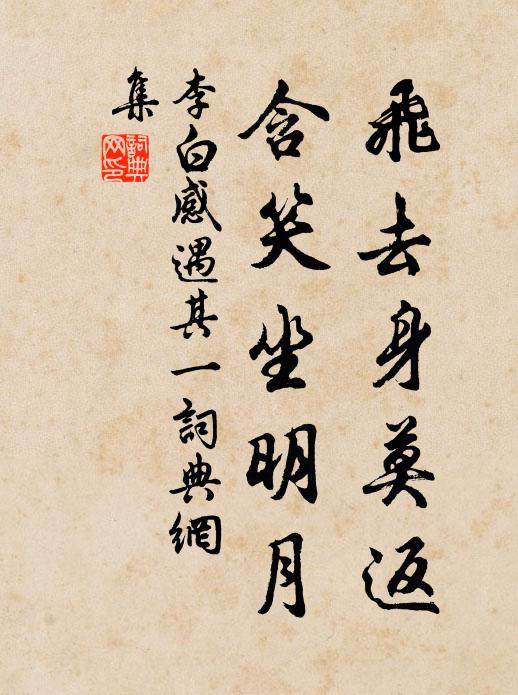 飛去身莫返
含笑坐明月
李白感遇其一詞典網
集
詞典
网印